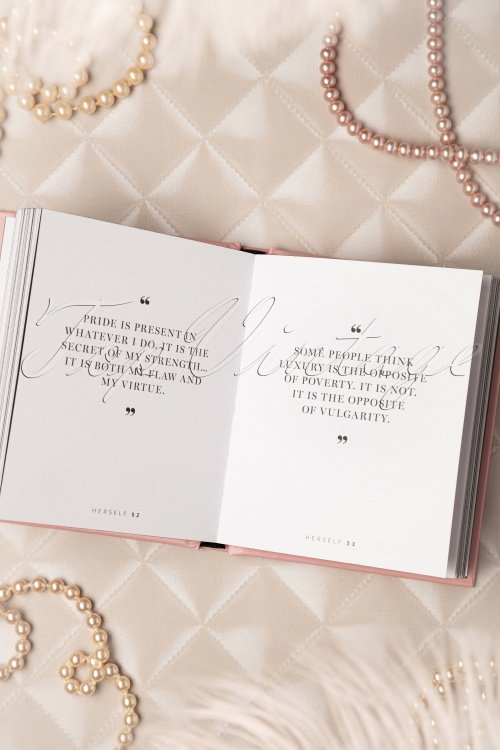 ❝
PRIDE IS PRESENT IN
WHATEVER I DO. IT IS THE
SECRET OF MY STRENGTH...
IT IS BOTH MY FLAW AND
MY VIRTUE.
❞
HERSELF 52
❝
SOME PEOPLE THINK
LUXURY IS THE OPPOSITE
OF POVERTY. IT IS NOT.
IT IS THE OPPOSITE
OF VULGARITY.
❞
HERSELF 53
TopVintage